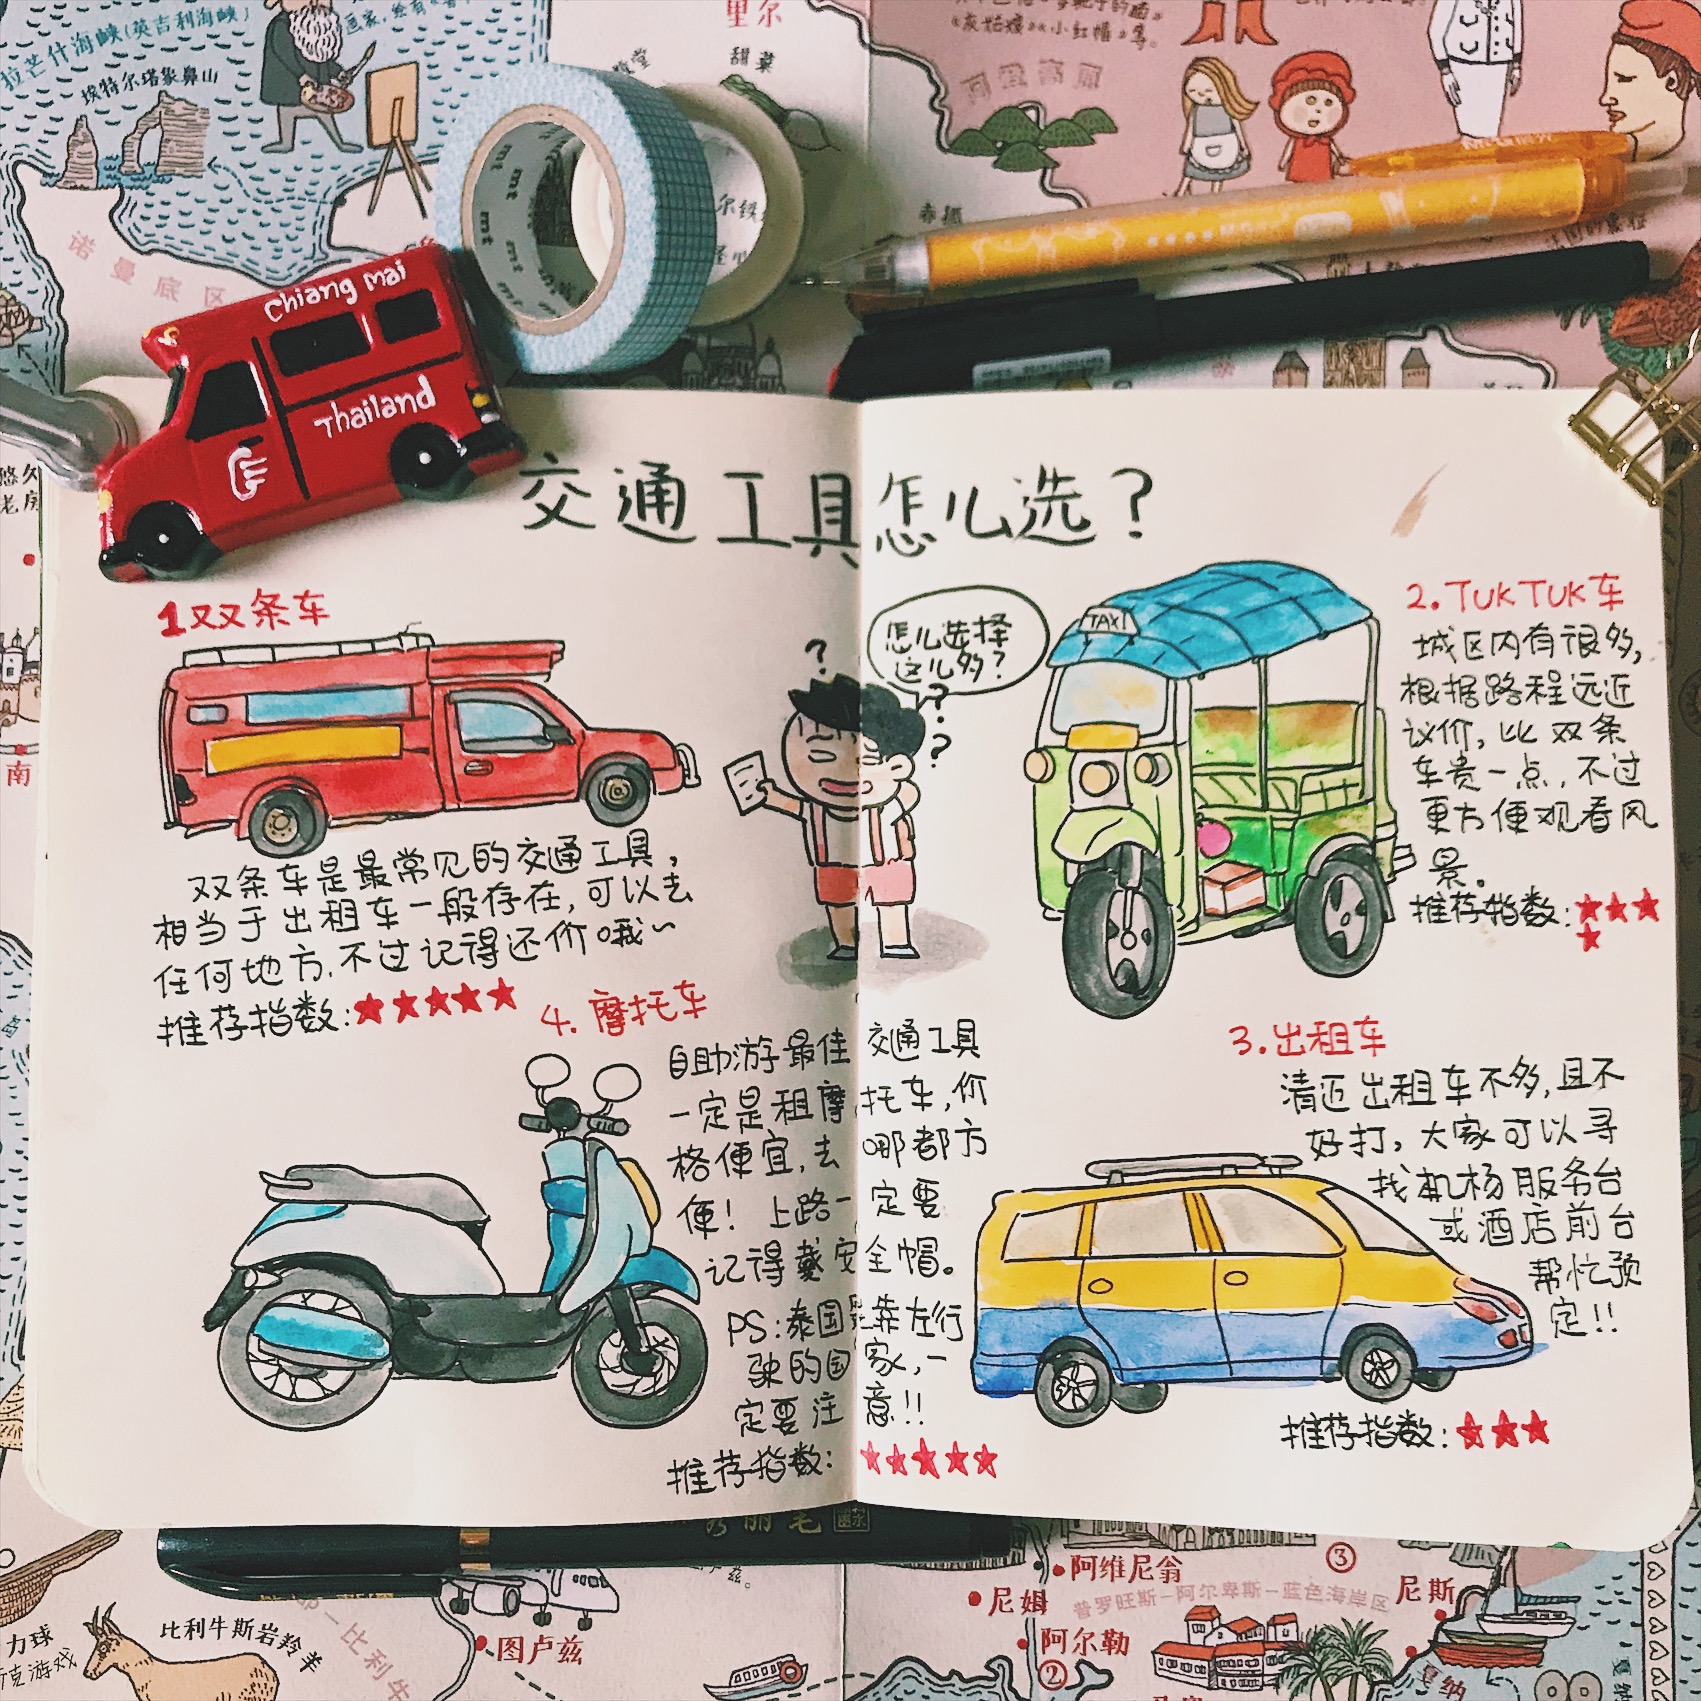 拉芒什海峡(英吉利海峡)
埃特尔塔象鼻山
里尔
甜菜
《灰姑娘》《小红帽》等。
诺曼底区
mt
mt
mt
Chiang Mai
Thailand
南
交通工具怎么选？
1 双条车
双条车是最常见的交通工具，
相当于出租车一般存在，可以去
任何地方，不过记得还价哦~
推荐指数:★★★★★
怎么选择
这么多?
?
?
?
TAXI
2. TUKTUK车
城区内有很多，
根据路程远近
议价，比双条
车贵一点，不过
更方便观看风
景。
推荐指数:★★★
★
3.出租车
清迈出租车不多，且不
好打，大家可以寻
找机场服务台
或酒店前台
帮忙预
定!!
推荐指数:★★★
4. 摩托车
自助游最佳交通工具
一定是租摩托车，价
格便宜，去哪都方
便！上路一定要
记得戴安全帽。
PS:泰国是靠左行
驶的国家，一
定要注意!!
推荐指数:★★★★★
阿维尼翁
③
尼姆
普罗旺斯-阿尔卑斯-蓝色海岸区
尼斯
阿尔勒
②
图卢兹
比利牛斯岩羚羊